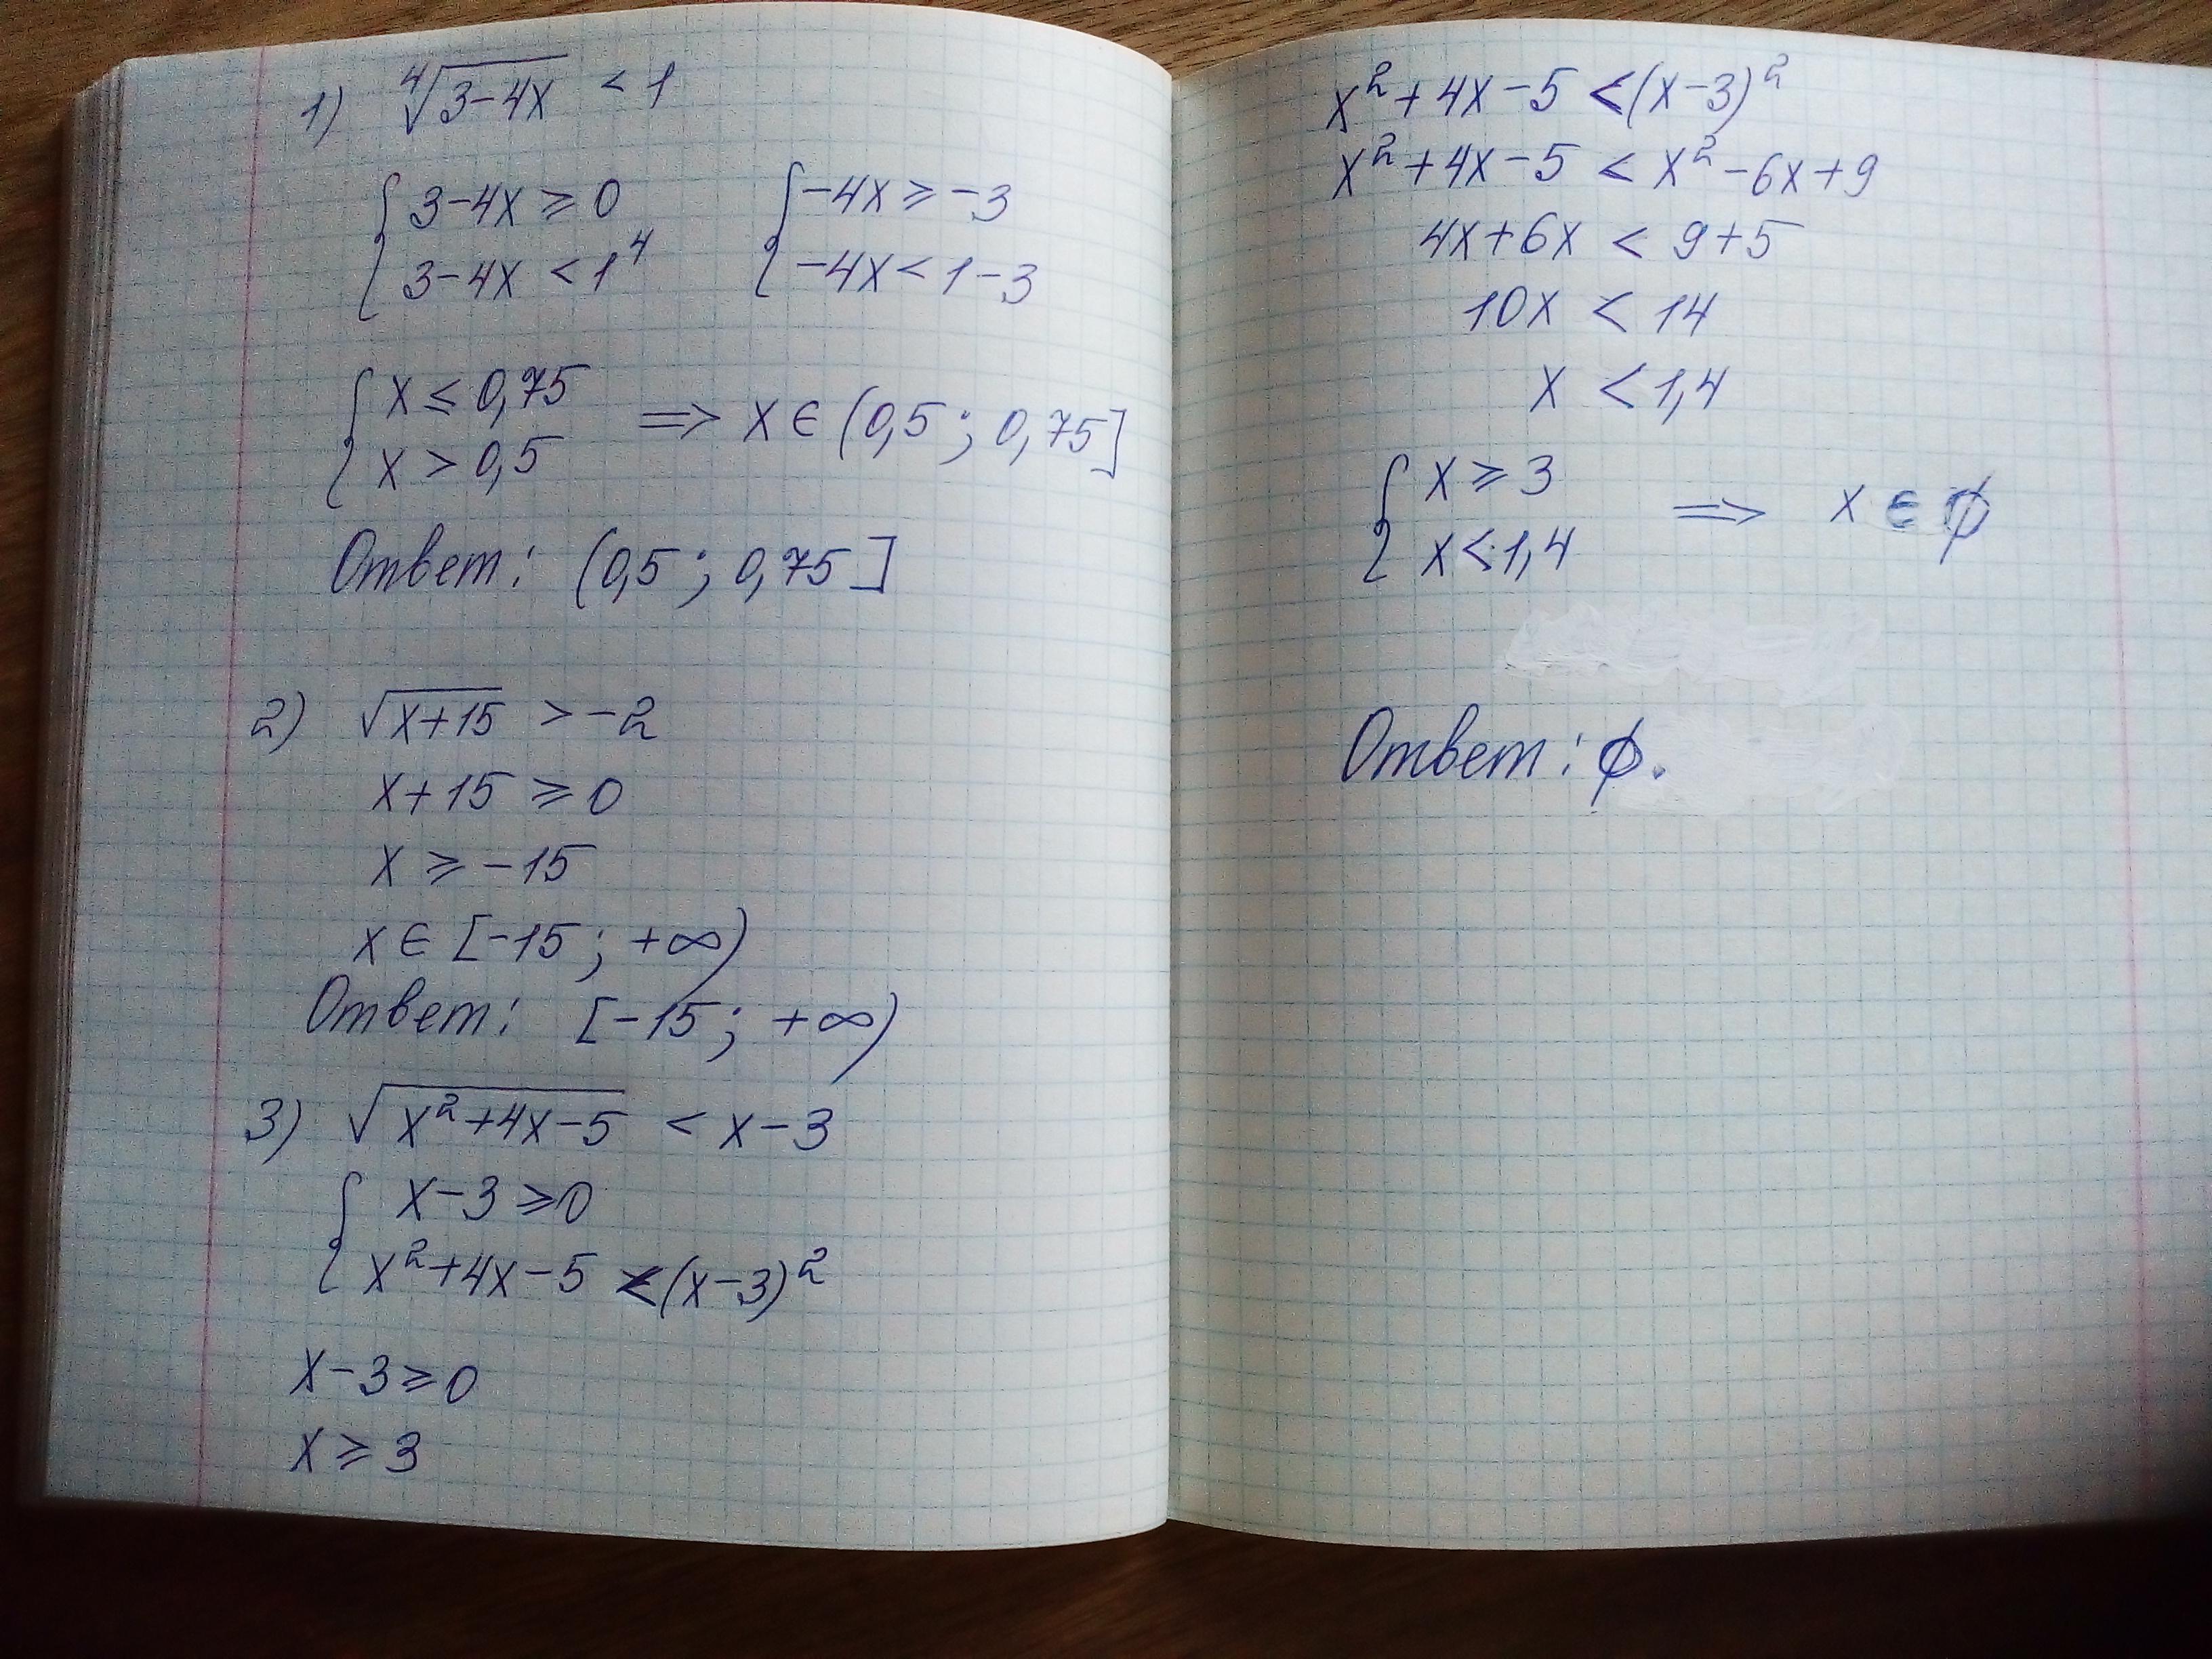 1) ⁴√(3-4x) < 1
{ 3-4x ≥ 0 { -4x ≥ -3
{ 3-4x < 1⁴ { -4x < 1-3
{ x ≤ 0,75
{ x > 0,5 => x ∈ (0,5; 0,75]
Ответ: (0,5; 0,75]
2) √(x+15) > -2
x+15 ≥ 0
x ≥ -15
x ∈ [-15; +∞)
Ответ: [-15; +∞)
3) √(x²+4x-5) < x-3
{ x-3 ≥ 0
{ x²+4x-5 < (x-3)²
x-3 ≥ 0
x ≥ 3
x²+4x-5 < (x-3)²
x²+4x-5 < x²-6x+9
4x+6x < 9+5
10x < 14
x < 1,4
{ x ≥ 3
{ x < 1,4 => x ∈ ∅
Ответ: ∅.